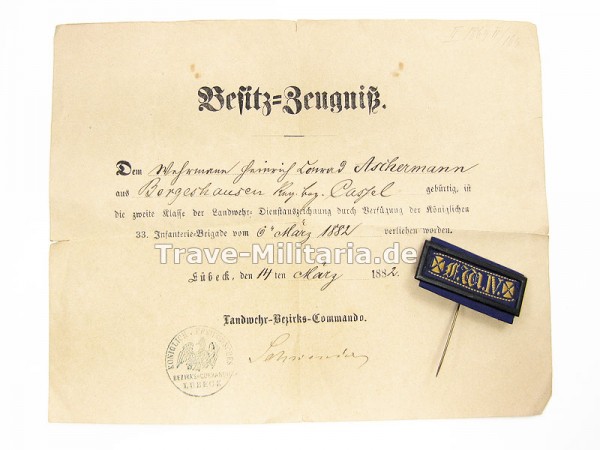 Besitz=Zeugniß.
Dem Wehrmann Heinrich Conrad Aschermann
aus Borgeshausen Reg. bez. Cassel gebürtig, ist
die zweite Klasse der Landwehr-Dienstauszeichnung durch Verfügung der Königlichen
33. Infanterie-Brigade vom 6ten März 1882 verliehen worden.
Trave-Militaria.de
Lübeck, den 14ten März 1882.
F.W.IV.
Landwehr-Bezirks-Commando.
KÖNIGLICH PREUSS.
BEZIRKS-COMMANDO
LÜBECK